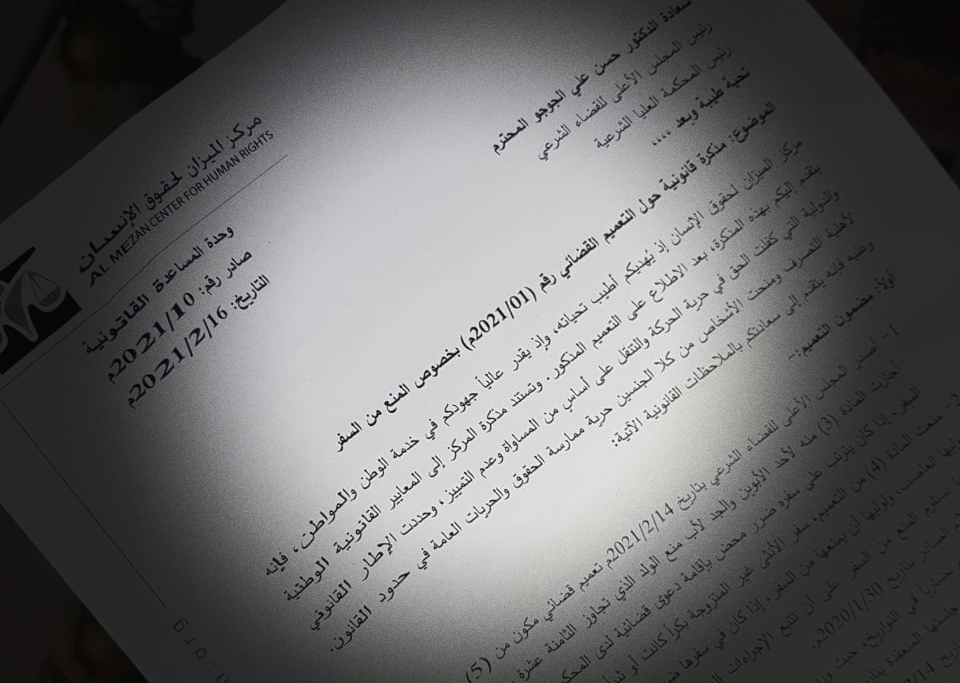 مركز الميزان لحقوق الإنسان
AL MEZAN CENTER FOR HUMAN RIGHTS
وحدة المساعدة القانونية
صادر رقم: 2021/10م
التاريخ: 2021/2/16م
سعادة الدكتور حسن علي الجوجو المحترم
رئيس المجلس الأعلى للقضاء الشرعي
رئيس المحكمة العليا الشرعية
تحية طيبة وبعد ،،،،
الموضوع: مذكرة قانونية حول التعميم القضائي رقم (2021/01م) بخصوص المنع من السفر
مركز الميزان لحقوق الإنسان إذ يُهديكم أطيب تحياته، وإذ يقدر عالياً جهودكم في خدمة الوطن والمواطن، فإنه
يتقدم إليكم بهذه المذكرة، بعد الاطلاع على التعميم المذكور. وتستند مذكرة المركز إلى المعايير القانونية الوطنية
والدولية التي كفلت الحق في حرية الحركة والتنقل على أساس من المساواة وعدم التمييز، وحددت الإطار القانوني
لأهلية التصرف ومنحت الأشخاص من كلا الجنسين حرية ممارسة الحقوق والحريات العامة في حدود القانون.
وعليه فإنه يتقدم إلى سعادتكم بالملاحظات القانونية الآتية:
أولاً: مضمون التعميم:-
1- أصدر المجلس الأعلى للقضاء الشرعي بتاريخ 2021/2/14م تعميم قضائي مكون من (5)
أجازت المادة (3) منه لأحد الأبوين والجد لأب منع الولد الذي تجاوز الثامنة عشرة
السفر، إذا كان يترتب على سفره ضرر محض بإقامة دعوى قضائية لدى المحكمة
2- سعت المادة (4) من التعميم، سفر الأنثى غير المتزوجة بكراً كانت أو ثيباً
وليها العاصب، ولوليها أن يمنعها من السفر، إذا كان في سفرها
المنع من السفر على أن تتبع الإجراءات
الصادر بتاريخ 2020/1/30م.
في التواريخ، حيث
جلستها المنعقدة بتاريخ